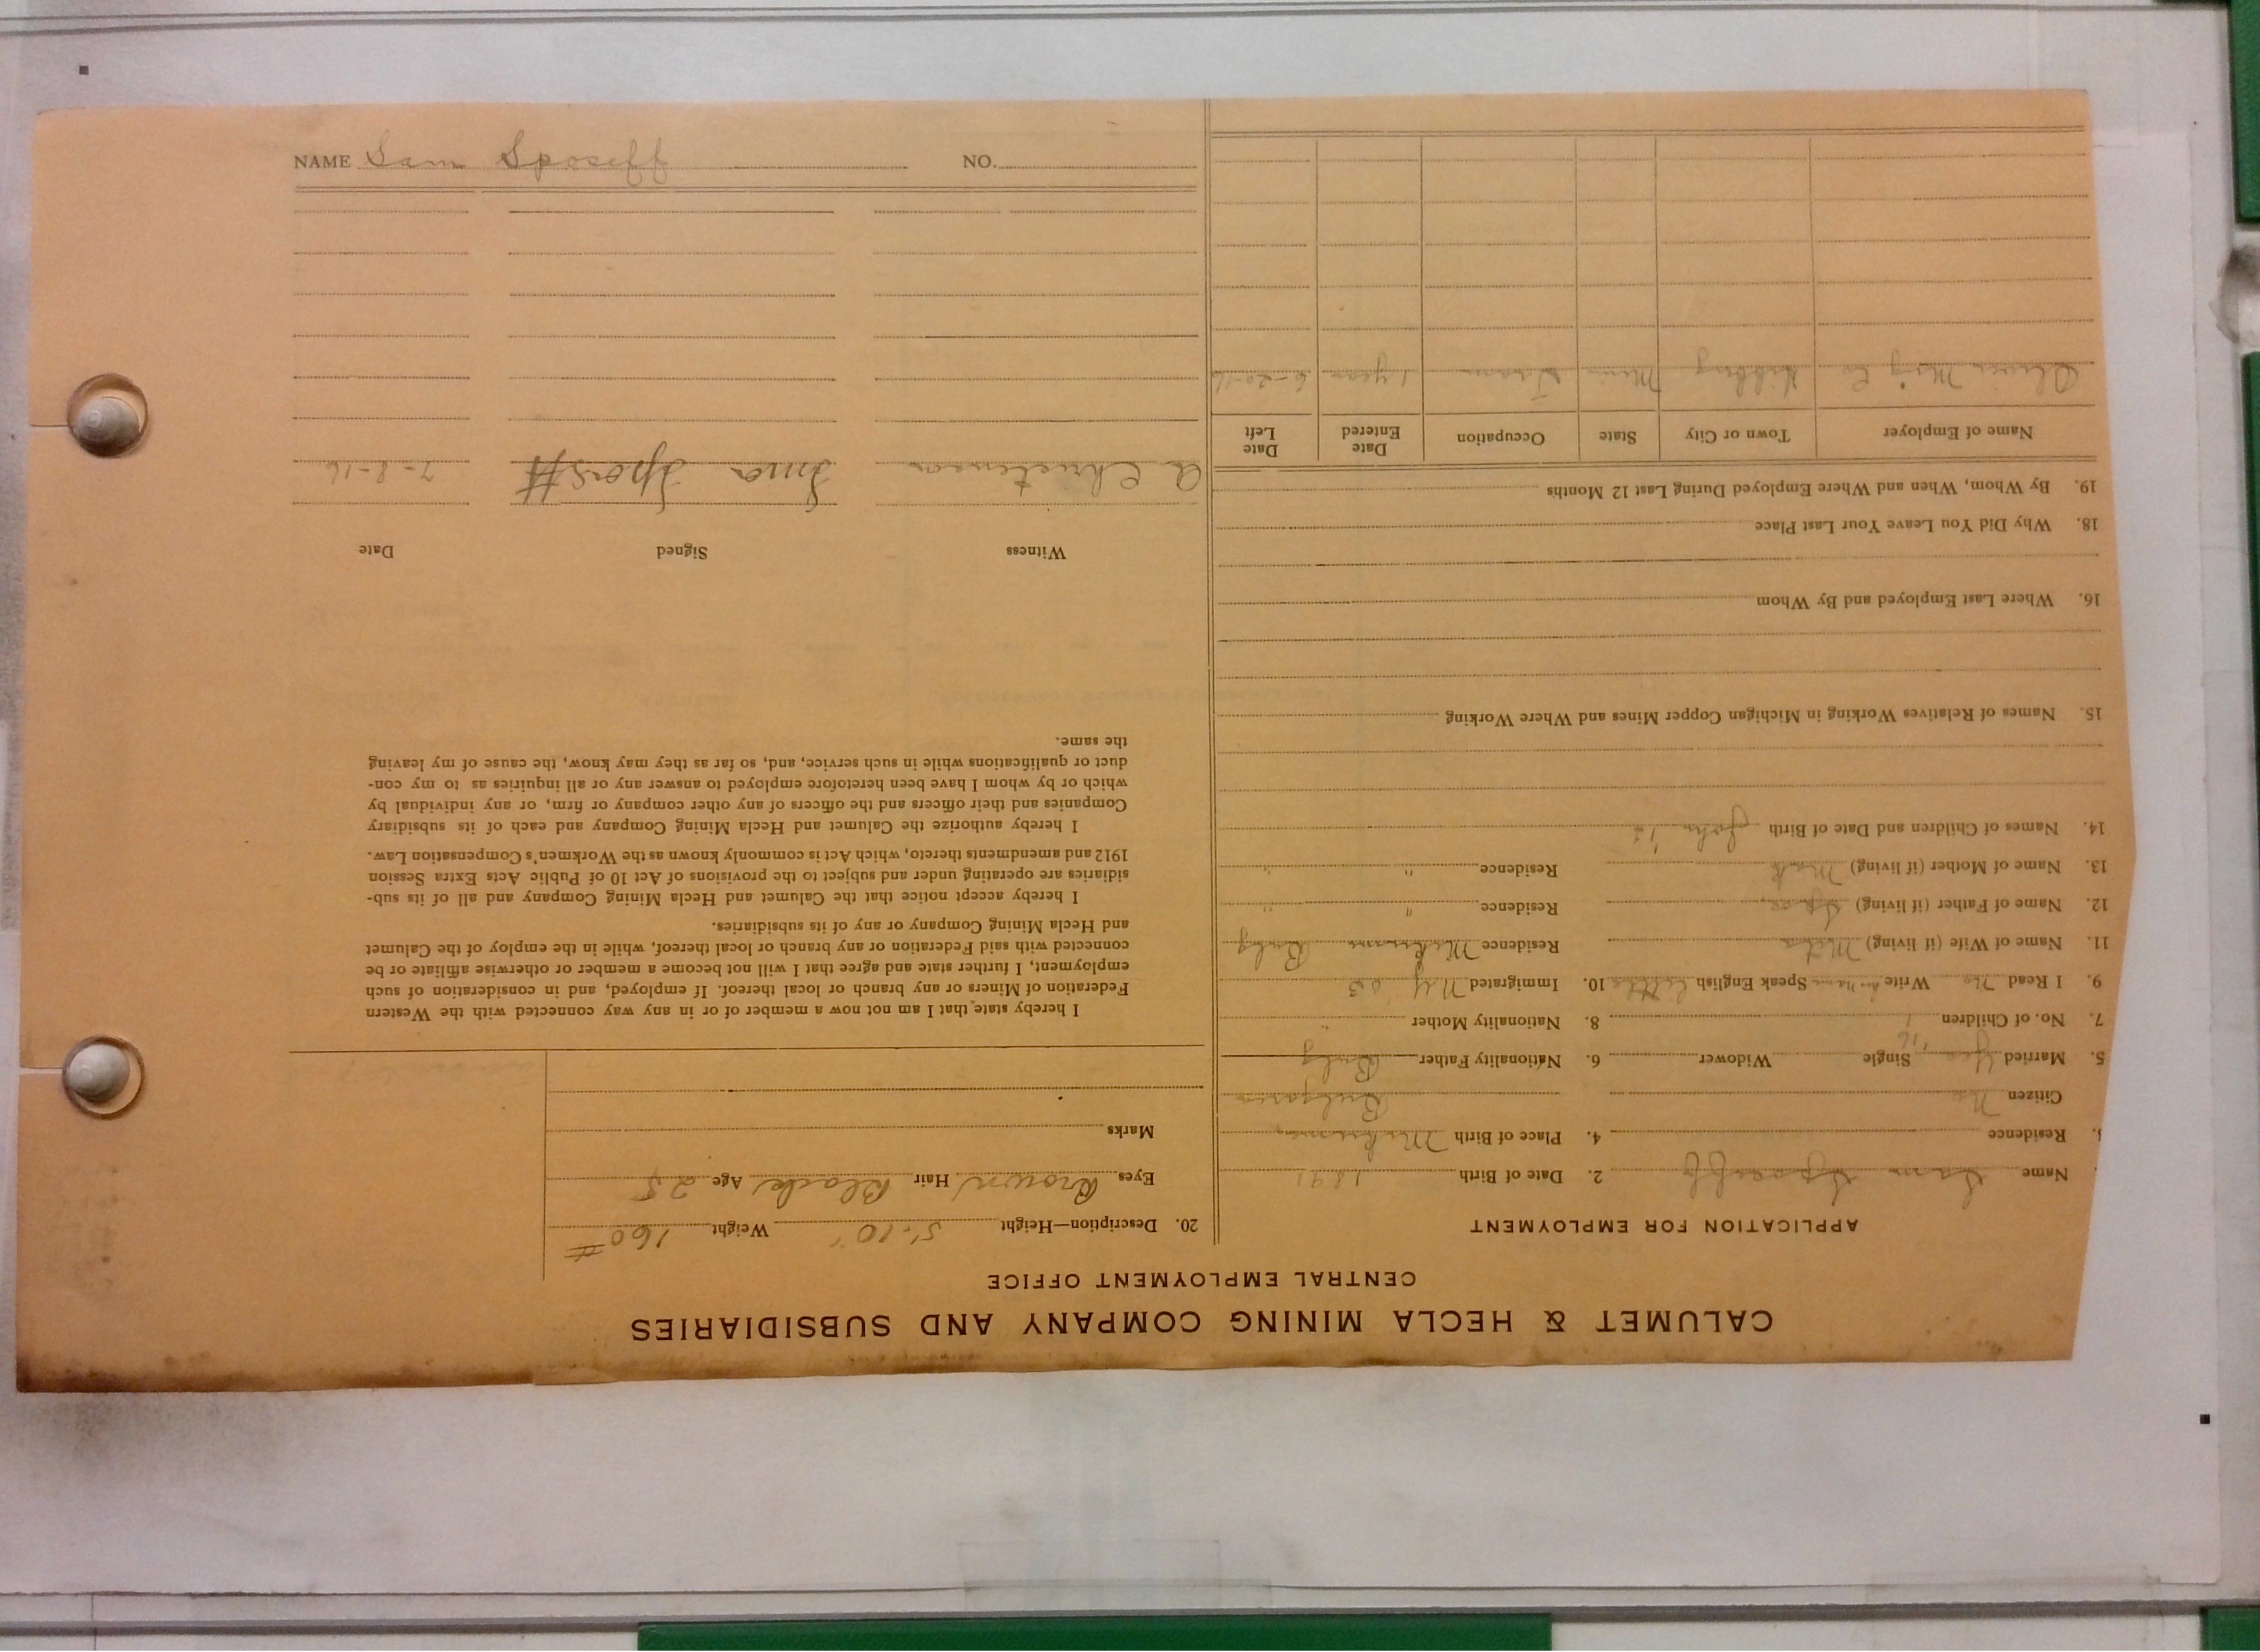 CALUMET & HECLA MINING COMPANY AND SUBSIDIARIES
CENTRAL EMPLOYMENT OFFICE
APPLICATION FOR EMPLOYMENT
Name Sam Sposeff 2. Date of Birth 1891
Residence 4. Place of Birth
Citizen No Bulgaria
5. Married Yes Single Widower 6. Nationality Father Bulg
7. No. of Children 1 8. Nationality Mother "
9. I Read No Write Speak English little 10. Immigrated N.Y.
11. Name of Wife (if living) Residence Bulg
12. Name of Father (if living) Residence " "
13. Name of Mother (if living) Residence " "
14. Names of Children and Date of Birth John
15. Names of Relatives Working in Michigan Copper Mines and Where Working
16. Where Last Employed and By Whom
18. Why Did You Leave Your Last Place
19. By Whom, When and Where Employed During Last 12 Months
Name of Employer Town or City State Occupation Date Entered Date Left
Oliver M'g Co Hibbing Minn Tram 1 year 6-20-16
20. Description—Height 5'-10" Weight 160 #
Eyes Brown Hair Black Age 25
Marks
I hereby state that I am not now a member of or in any way connected with the Western
Federation of Miners or any branch or local thereof. If employed, and in consideration of such
employment, I further state and agree that I will not become a member or otherwise affiliate or be
connected with said Federation or any branch or local thereof, while in the employ of the Calumet
and Hecla Mining Company or any of its subsidiaries.
I hereby accept notice that the Calumet and Hecla Mining Company and all of its sub-
sidiaries are operating under and subject to the provisions of Act 10 of Public Acts Extra Session
1912 and amendments thereto, which Act is commonly known as the Workmen's Compensation Law.
I hereby authorize the Calumet and Hecla Mining Company and each of its subsidiary
Companies and their officers and the officers of any other company or firm, or any individual by
which or by whom I have been heretofore employed to answer any or all inquiries as to my con-
duct or qualifications while in such service, and, so far as they may know, the cause of my leaving
the same.
Witness Signed Date
A Christensen 7-8-16
NAME Sam Sposeff NO.